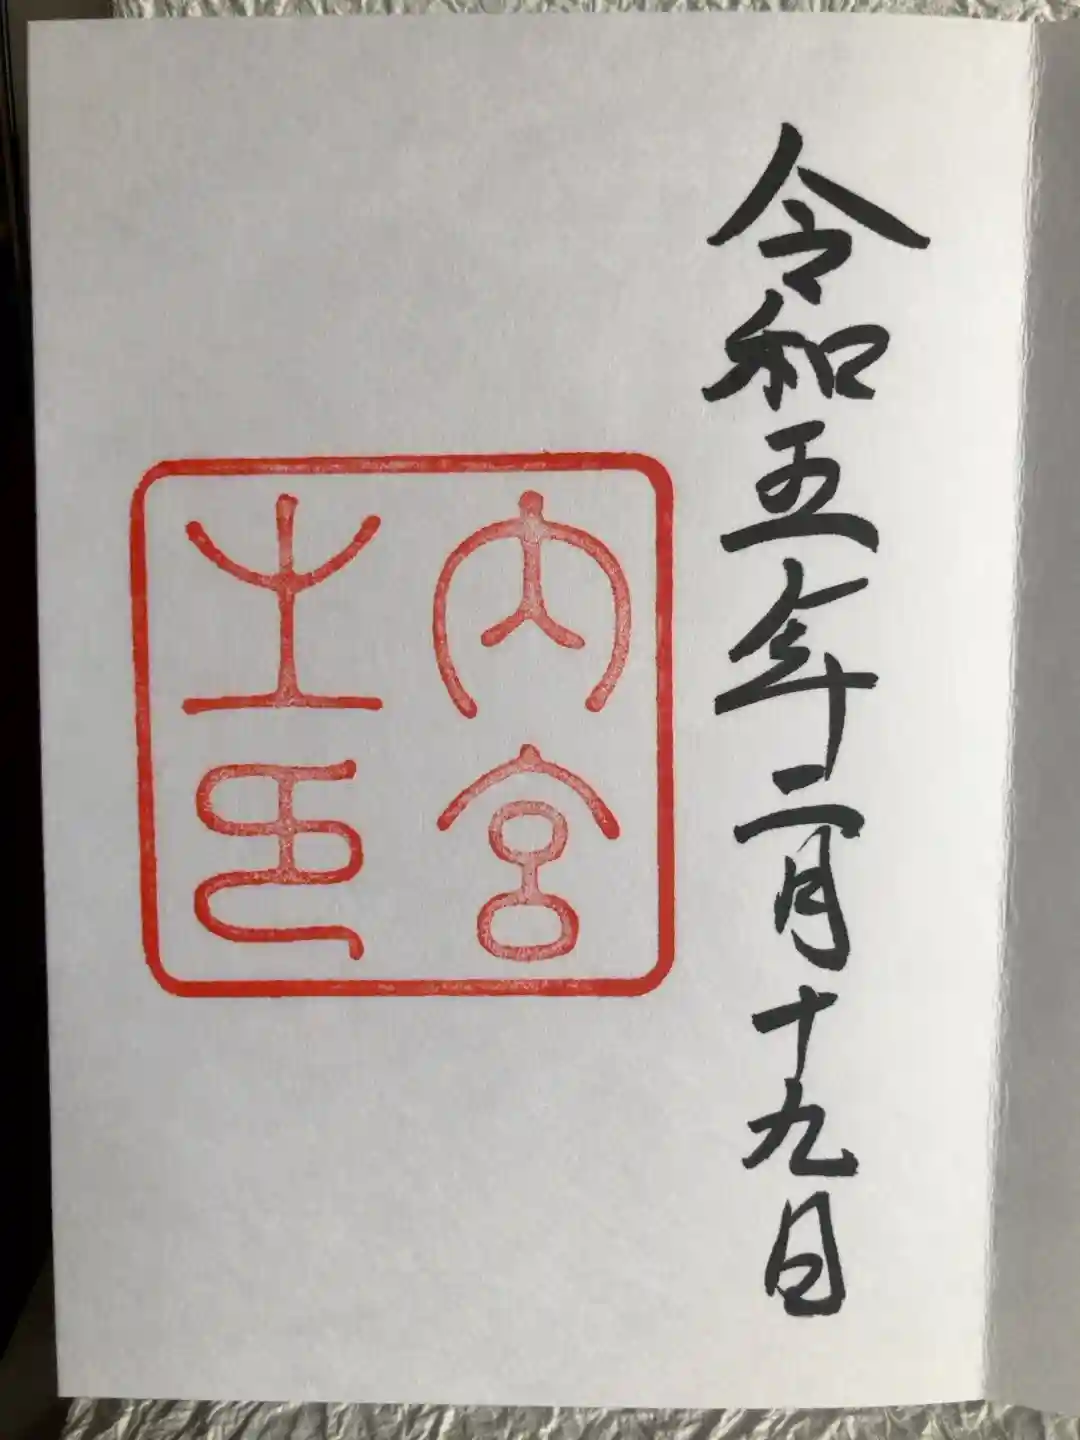 令和五年二月十九日
内宮
之印